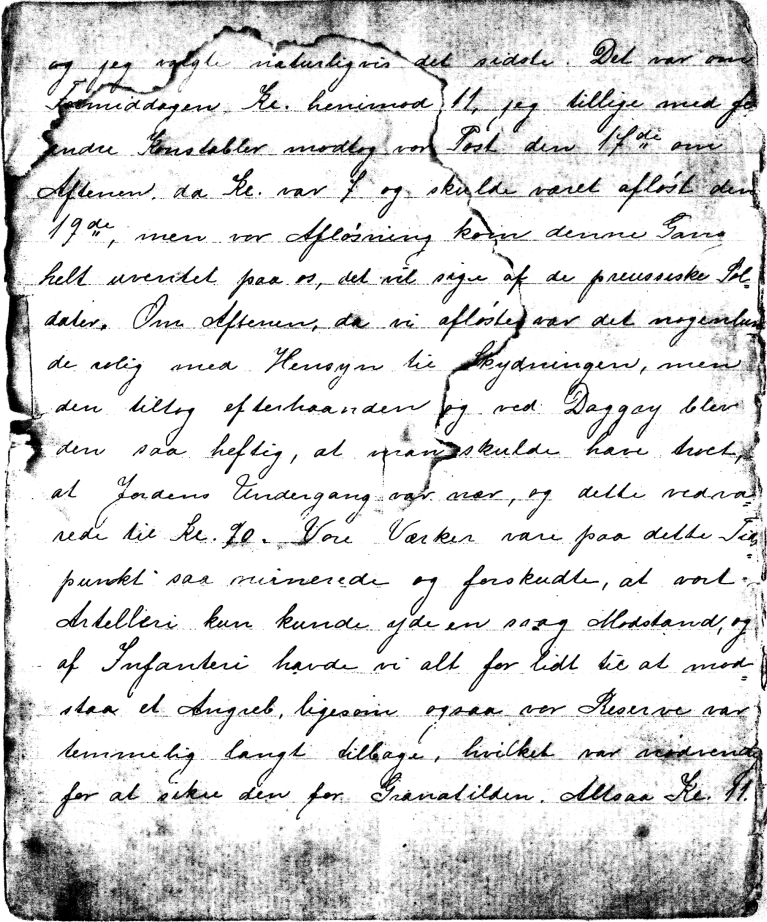 og jeg valgte naturligvis det sidste. Det var om
Formiddagen Kl. henimod 11, jeg tillige med fe
endre Konstabler modtog vor Post den 17de om
Aftenen, da Kl. var 7 og skulde været afløst den
19de, men vor Afløsning kom denne Gang
helt uventet paa os, det vil sige af de preussiske Sol=
dater. Om Aftenen, da vi afløste, var det nogenlun
de rolig med Hensyn til Skydningen, men
den tiltog efterhaanden og ved Daggry blev
den saa heftig, at man skulde have troet,
at Jordens Undergang var nær, og dette vedva=
rede til Kl. 10. Vore Værker vare paa dette Tids
punkt saa ruinerede og forskudte, at vort
Artelleri kun kunde yde en svag Modstand, og
af Infanteri havde vi alt for lidt til at mod=
staa et Angreb, ligesom ogsaa vor Reserve var
temmelig langt tilbage, hvilket var nødvendig
for at sikre den for Granatilden. Altsaa Kl. 11.